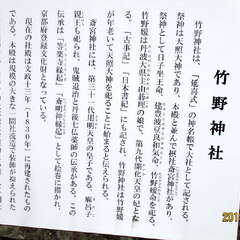 竹野神社
竹野神社は、「延喜式」の神名帳で大社として記される。
祭神は天照大神であり、本殿と並んで摂社斎宮神社があり、
祭神として日子坐王命、建豊波豆良和気命、竹野媛命を祀る。
竹野媛は丹波大県主由碁理の娘で、第九代開化天皇の妃と
が年老いて天照大神を祀ることに始まると伝えられる。
「古事記」「日本書紀」にも記され、竹野神社は竹野媛
斎宮神社には、第三十一代用明天皇の皇子である、麻呂子
親王も祀られ、鬼賊退治と丹後七仏薬師の伝承がある。この
伝承は「等楽寺縁起」「斎明神縁起」として絵巻に描かれ、
京都府登録文化財となっている。
現在の社殿は文政十三年(1830年)に再建されたもの
である。本殿は規模の大きな一間社流造で装飾が抑えられた
201